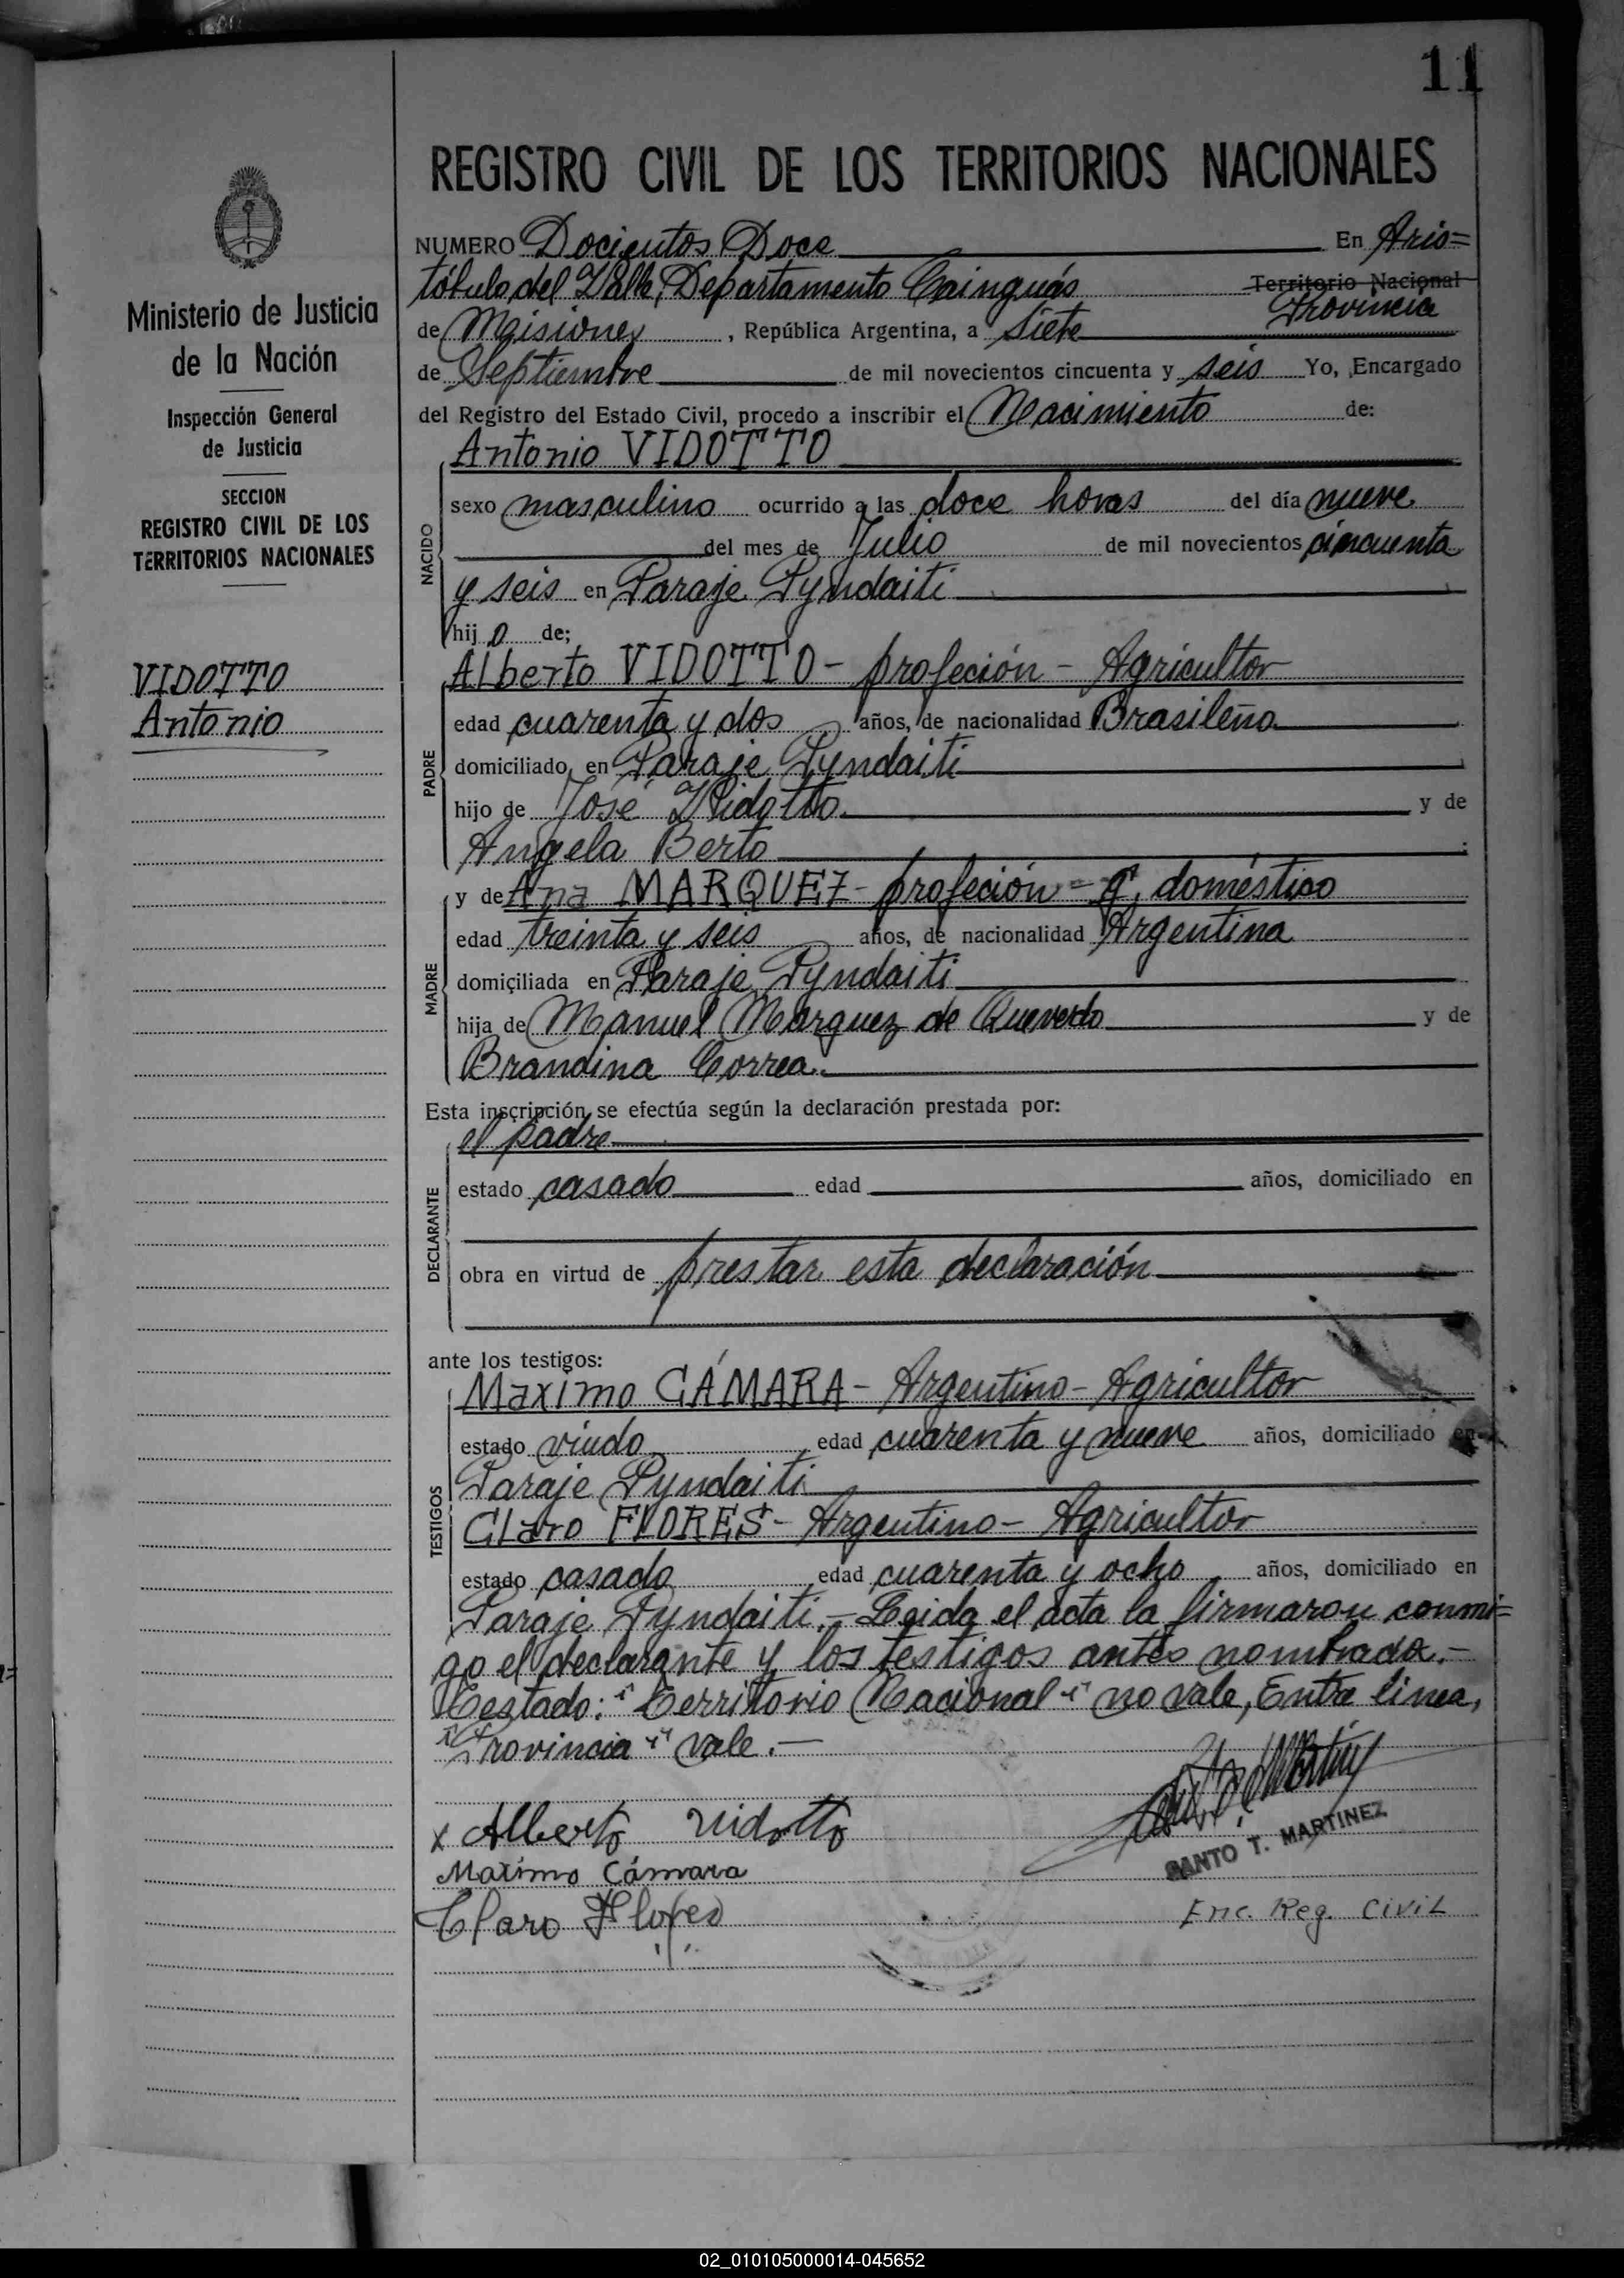 11
REGISTRO CIVIL DE LOS TERRITORIOS NACIONALES
Ministerio de Justicia
de la Nación
Inspección General
de Justicia
SECCION
REGISTRO CIVIL DE LOS
TERRITORIOS NACIONALES
VIDOTTO
Antonio
NUMERO Docientos Doce En Aris=
tóbulo del Valle, Departamento Cainguás Territorio Nacional
Provincia
de Misiones, República Argentina, a siete
de Septiembre de mil novecientos cincuenta y seis Yo, Encargado
del Registro del Estado Civil, procedo a inscribir el Nacimiento de:
Antonio VIDOTTO
NACIDO
sexo masculino ocurrido a las doce horas del día nueve
del mes de Julio de mil novecientos cincuenta
y seis en Paraje Pyndaiti
hijo de;
PADRE
Alberto VIDOTTO - profeción - Agricultor
edad cuarenta y dos años, de nacionalidad Brasileña
domiciliado en Paraje Pyndaiti
hijo de José Vidotto y de
Angela Berto ;
MADRE
y de Ana MARQUEZ - profeción - q. doméstico
edad treinta y seis años, de nacionalidad Argentina
domiciliada en Paraje Pyndaiti
hija de Manuel Marquez de Quevedo y de
Brandina Correa.
Esta inscripción se efectúa según la declaración prestada por:
el padre
DECLARANTE
estado casado edad años, domiciliado en
obra en virtud de prestar esta declaración
ante los testigos:
TESTIGOS
Maximo CÁMARA - Argentino - Agricultor
estado viudo edad cuarenta y nueve años, domiciliado en
Paraje Pyndaiti
Claro FLORES - Argentino - Agricultor
estado casado edad cuarenta y ocho años, domiciliado en
Paraje Pyndaiti. - Leida el acta la firmaron conmi=
go el declarante y los testigos antes nombrado. -
Testado: "Territorio Nacional" no vale, Entre linea,
"Provincia" vale. -
x Alberto Vidotto
Maximo Cámara
Claro Flores
SANTO T. MARTINEZ
Enc. Reg. Civil
02_010105000014-045652